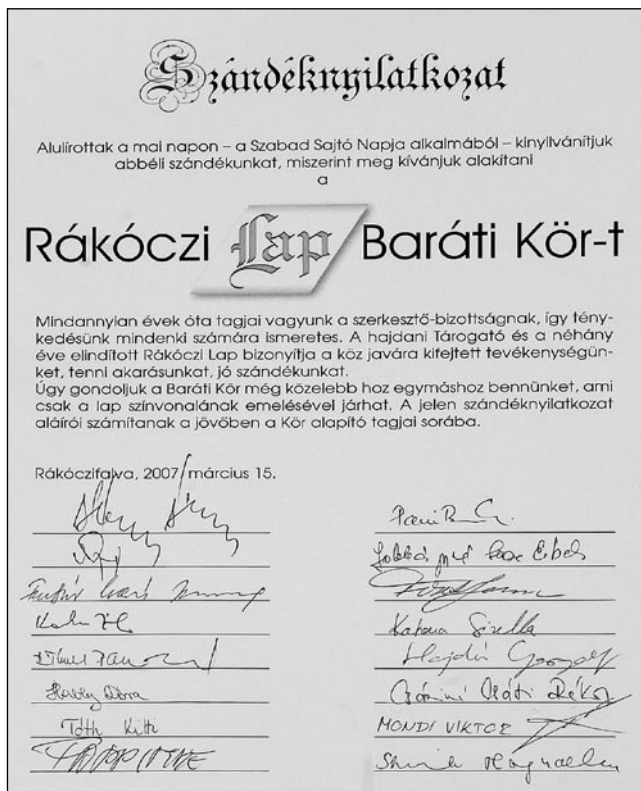 Szándéknyilatkozat
Alulírottak a mai napon – a Szabad Sajtó Napja alkalmából – kinyilvánítjuk
abbéli szándékunkat, miszerint meg kívánjuk alakítani
a
Rákóczi Lap Baráti Kör-t
Mindannyian évek óta tagjai vagyunk a szerkesztő-bizottságnak, így tény-
kedésünk mindenki számára ismeretes. A hajdani Tárogató és a néhány
éve elindított Rákóczi Lap bizonyítja a köz javára kifejtett tevékenységün-
ket, tenni akarásunkat, jó szándékunkat.
Úgy gondoljuk a Baráti Kör még közelebb hoz egymáshoz bennünket, ami
csak a lap színvonalának emelésével járhat. A jelen szándéknyilatkozat
aláírói számítanak a jövőben a Kör alapító tagjai sorába.
Rákóczifalva, 2007 március 15.
Katona Gizella
Hajdú György
Tóth Kitti
MONDI VIKTOR